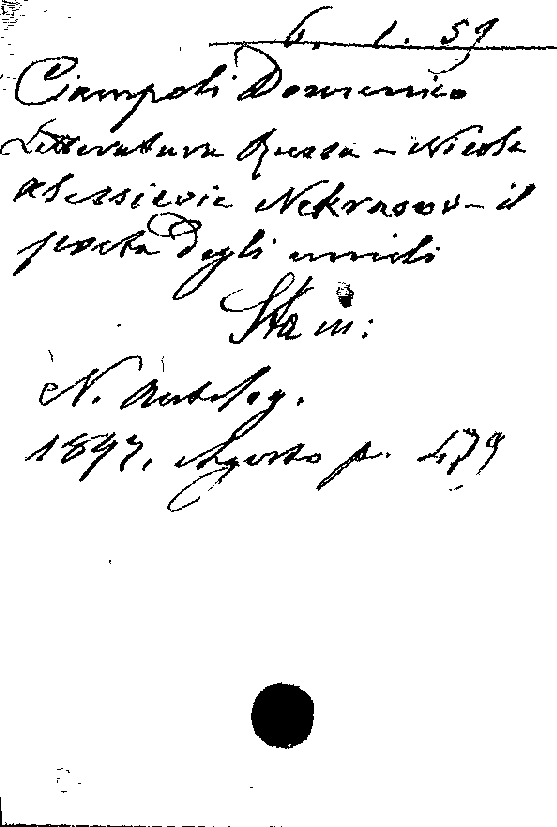 6. 1. 59
Ciampoli Domenico
Letteratura Russa - Nicola
Alessievic Nekrasov - il
poeta degli umili
Sta in:
N. Antolog.
1897, Agosto p. 479